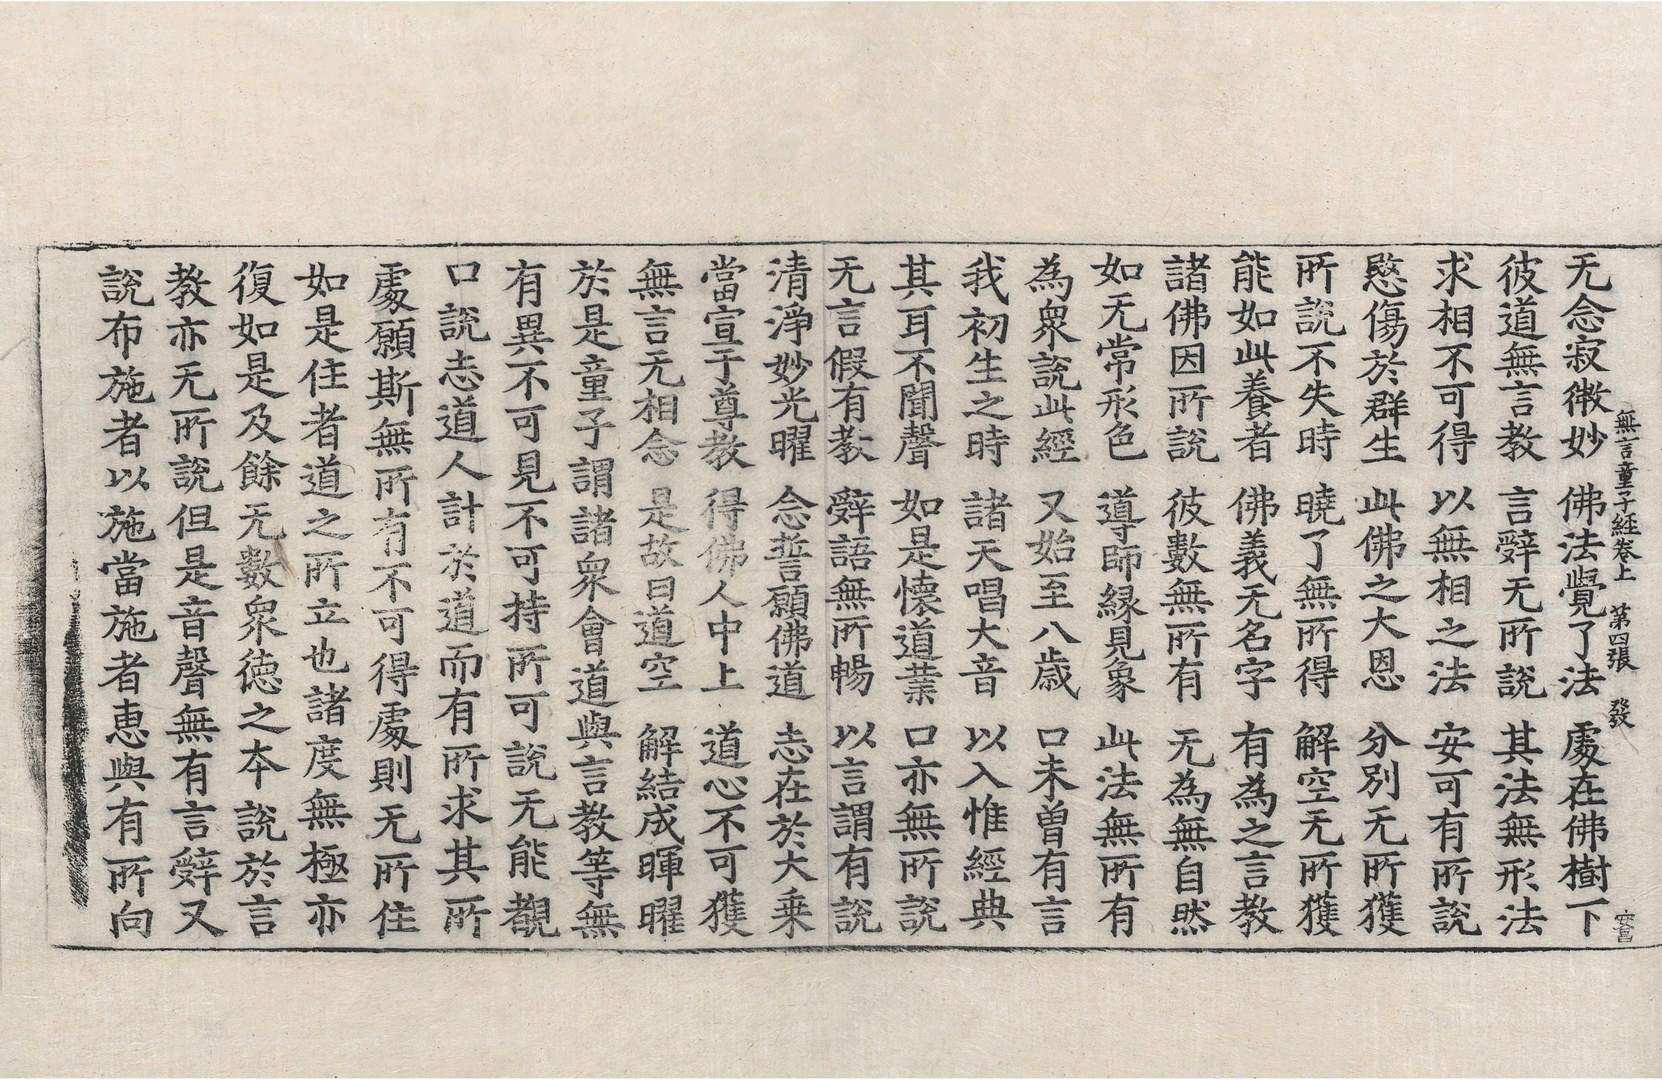 无念寂微妙　佛法覺了法　處在佛樹下
無言童子經卷上　第四張　發
彼道無言教　言辭无所說　其法無形法
求相不可得　以無相之法　安可有所說
愍傷於群生　此佛之大恩　分別无所獲
所說不失時　曉了無所得　解空无所獲
能如此養者　佛義无名字　有為之言教
諸佛因所說　彼數無所有　无為無自然
如无常形色　導師緣見象　此法無所有
為衆說此經　又始至八歲　口未曾有言
我初生之時　諸天唱大音　以入惟經典
其耳不聞聲　如是懷道業　口亦無所說
无言假有教　辭語無所暢　以言謂有說
清淨妙光曜　念誓願佛道　志在於大乗
當宣于尊教　得佛人中上　道心不可獲
無言无相念　是故曰道空　解結成暉曜
於是童子謂諸衆會道與言教等無
有異不可見不可持所可說无能覩
口說志道人計於道而有所求其所
處願斯無所有不可得處則无所住
如是住者道之所立也諸度無極亦
復如是及餘无數衆德之本說於言
教亦无所說但是音聲無有言辭又
說布施者以施當施者惠與有所向